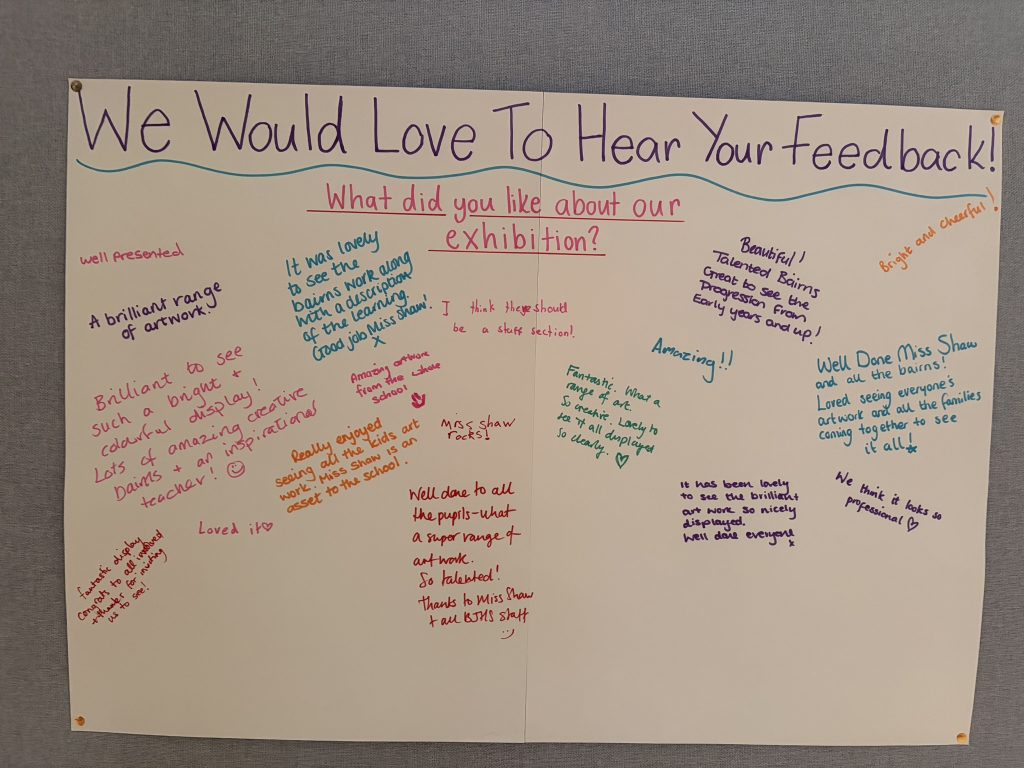 We Would Love To Hear Your Feedback!
What did you like about our
exhibition?
well Presented
A brilliant range
of artwork!
It was lovely
to see the
bairns work along
with a description
of the learning.
Good job Miss Shaw!
x
I think there should
be a staff section!
Beautiful!
Talented Bairns
Great to see the
Progression from
Early years and up!
Bright and cheerful!
Brilliant to see
such a bright +
colourful display!
Lots of amazing creative
Daims + an inspirational
teacher!
Amazing artwork
from the whole
school!
Really enjoyed
seeing all the kids art
work. Miss Shaw is an
asset to the school.
Miss Shaw
rocks!
Fantastic. What a
range of art.
So creative. Lovely to
see it all displayed
so clearly.
Amazing!!
Well Done Miss Shaw
and all the bairns!
Loved seeing everyone's
artwork and all the families
coming together to see
it all!
Fantastic display
congrats to all involved
+ thanks for inviting
us to see!
Loved it
Well done to all
the pupils - what
a super range of
art work.
So talented!
Thanks to Miss Shaw
+ all BJHS staff
:)
It has been lovely
to see the brilliant
art work so nicely
displayed.
Well done everyone
x
We think it looks so
professional